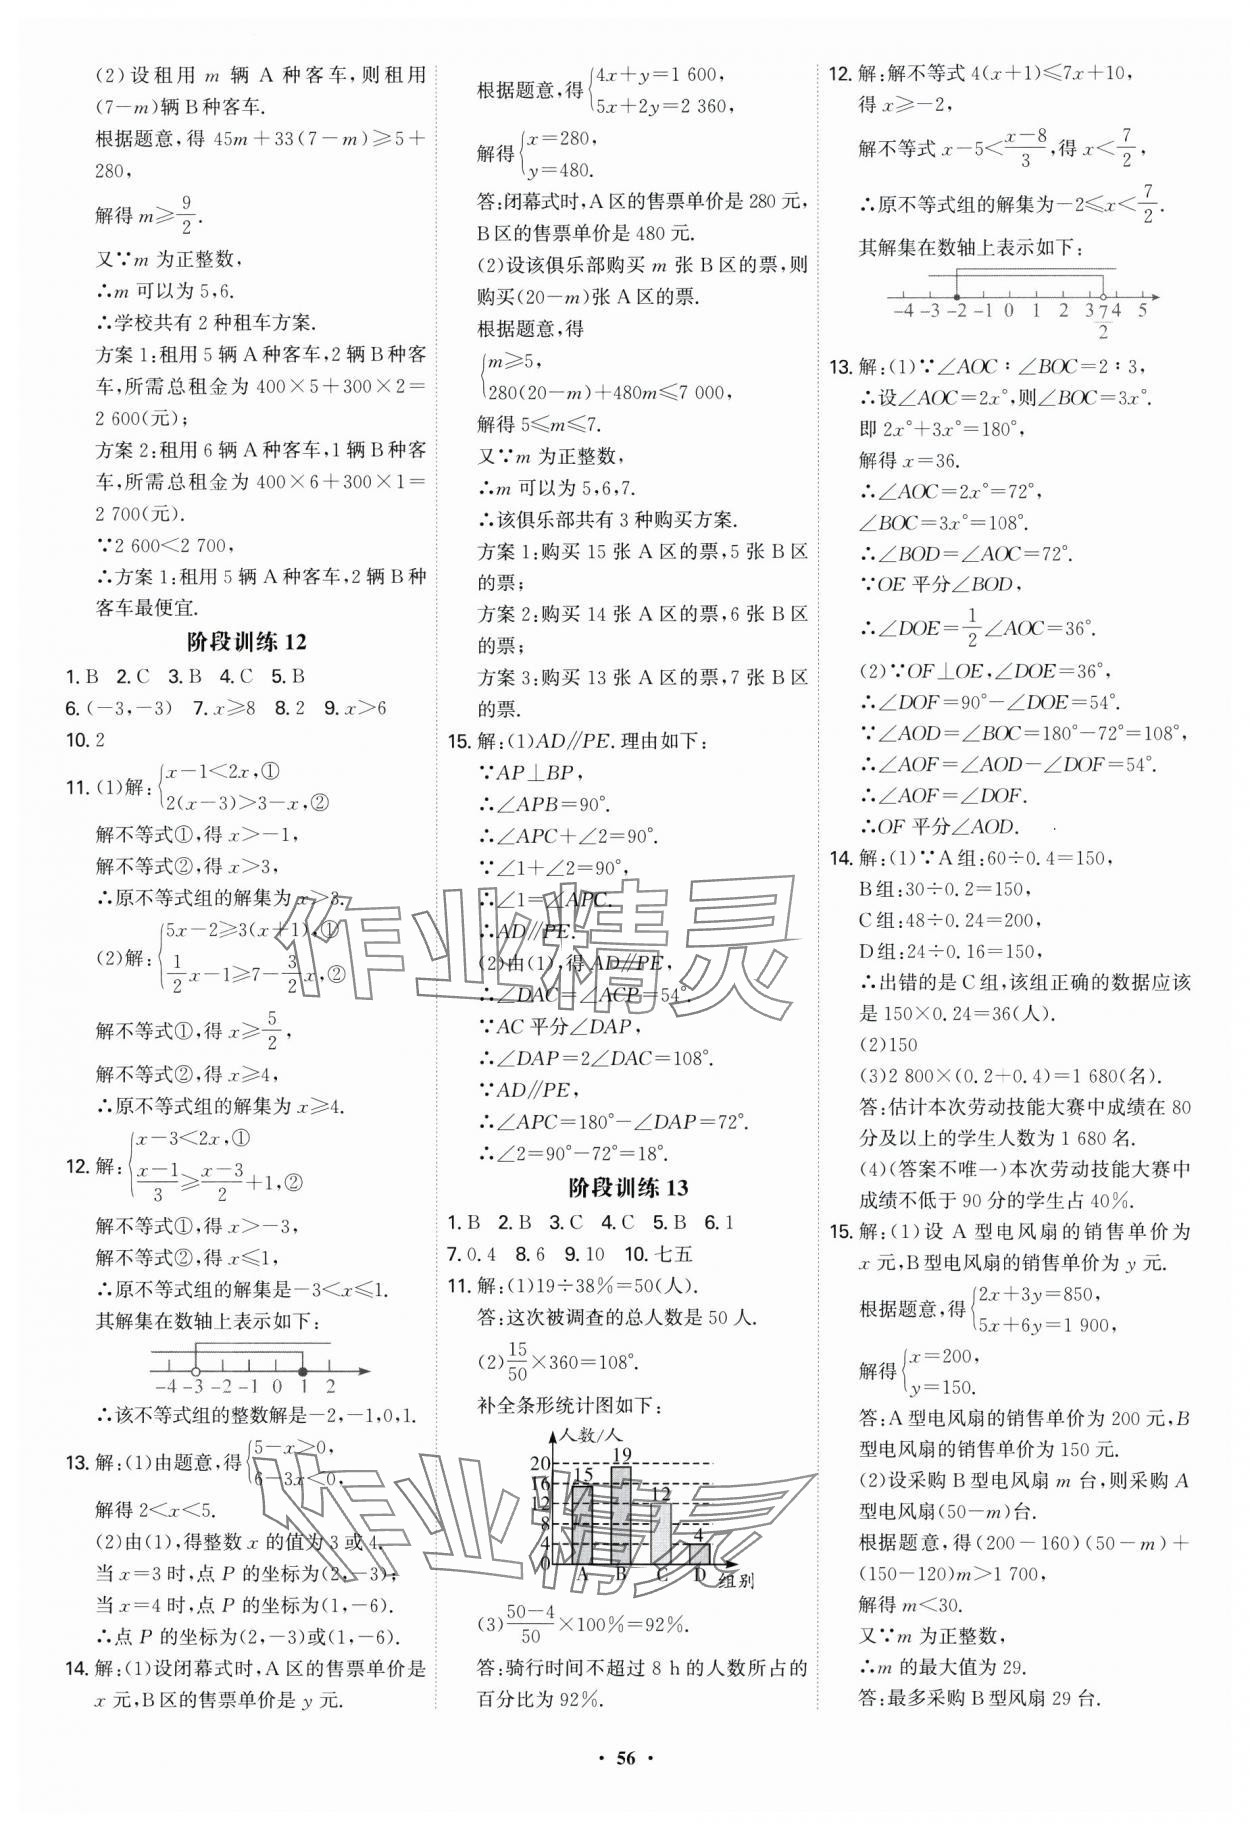 (2)设租用 m 辆 A 种客车,则租用
(7-m)辆 B 种客车.
根据题意,得 45m+33(7-m)≥5+
280,
解得 m≥9/2.
又∵m 为正整数,
∴m 可以为 5,6.
∴学校共有 2 种租车方案.
方案 1:租用 5 辆 A 种客车,2 辆 B 种客
车,所需总租金为 400×5+300×2=
2 600(元);
方案 2:租用 6 辆 A 种客车,1 辆 B 种客
车,所需总租金为 400×6+300×1=
2 700(元).
∵2 600<2 700,
∴方案 1:租用 5 辆 A 种客车,2 辆 B 种
客车最便宜.
阶段训练 12
1. B 2. C 3. B 4. C 5. B
6. (-3,-3) 7. x≥8 8. 2 9. x>6
10. 2
11. (1)解:{x-1<2x,①
2(x-3)>3-x,②
解不等式①,得 x>-1,
解不等式②,得 x>3,
∴原不等式组的解集为 x>3.
(2)解:{5x-2≥3(x+1),①
1/2x-1≥7-3/2x,②
解不等式①,得 x≥5/2,
解不等式②,得 x≥4,
∴原不等式组的解集为 x≥4.
12. 解:{x-3<2x,①
(x-1)/3≥(x-3)/2+1,②
解不等式①,得 x>-3,
解不等式②,得 x≤1,
∴原不等式组的解集是-3<x≤1.
其解集在数轴上表示如下:
-4 -3 -2 -1 0 1 2
∴该不等式组的整数解是-2,-1,0,1.
13. 解:(1)由题意,得{5-x>0,
6-3x<0,
解得 2<x<5.
(2)由(1),得整数 x 的值为 3 或 4.
当 x=3 时,点 P 的坐标为(2,-3);
当 x=4 时,点 P 的坐标为(1,-6).
∴点 P 的坐标为(2,-3)或(1,-6).
14. 解:(1)设闭幕式时,A 区的售票单价是
x 元,B 区的售票单价是 y 元.
根据题意,得{4x+y=1 600,
5x+2y=2 360,
解得{x=280,
y=480.
答:闭幕式时,A 区的售票单价是 280 元,
B 区的售票单价是 480 元.
(2)设该俱乐部购买 m 张 B 区的票,则
购买(20-m)张 A 区的票.
根据题意,得
{m≥5,
280(20-m)+480m≤7 000,
解得 5≤m≤7.
又∵m 为正整数,
∴m 可以为 5,6,7.
∴该俱乐部共有 3 种购买方案.
方案 1:购买 15 张 A 区的票,5 张 B 区
的票;
方案 2:购买 14 张 A 区的票,6 张 B 区
的票;
方案 3:购买 13 张 A 区的票,7 张 B 区
的票.
15. 解:(1)AD∥PE.理由如下:
∵AP⊥BP,
∴∠APB=90°.
∴∠APC+∠2=90°.
∵∠1+∠2=90°,
∴∠1=∠APC.
∴AD∥PE.
(2)由(1),得 AD∥PE,
∴∠DAC=∠ACP=54°.
∵AC 平分∠DAP,
∴∠DAP=2∠DAC=108°.
∵AD∥PE,
∴∠APC=180°-∠DAP=72°.
∴∠2=90°-72°=18°.
阶段训练 13
1. B 2. B 3. C 4. C 5. B 6. 1
7. 0.4 8. 6 9. 10 10. 七五
11. 解:(1)19÷38%=50(人).
答:这次被调查的总人数是 50 人.
(2)15/50×360=108°.
补全条形统计图如下:
人数/人
20
16
12
8
4
0
15
19
12
4
A B C D 组别
(3)(50-4)/50×100%=92%.
答:骑行时间不超过 8 h 的人数所占的
百分比为 92%.
12. 解:解不等式 4(x+1)≤7x+10,
得 x≥-2,
解不等式 x-5<(x-8)/3,得 x<7/2,
∴原不等式组的解集为-2≤x<7/2.
其解集在数轴上表示如下:
-4 -3 -2 -1 0 1 2 3 7/2 4 5
13. 解:(1)∵∠AOC∶∠BOC=2∶3,
∴设∠AOC=2x°,则∠BOC=3x°.
即 2x°+3x°=180°,
解得 x=36.
∴∠AOC=2x°=72°,
∠BOC=3x°=108°.
∴∠BOD=∠AOC=72°.
∵OE 平分∠BOD,
∴∠DOE=1/2∠AOC=36°.
(2)∵OF⊥OE,∠DOE=36°,
∴∠DOF=90°-∠DOE=54°.
∵∠AOD=∠BOC=180°-72°=108°,
∴∠AOF=∠AOD-∠DOF=54°.
∴∠AOF=∠DOF.
∴OF 平分∠AOD.
14. 解:(1)∵A 组:60÷0.4=150,
B 组:30÷0.2=150,
C 组:48÷0.24=200,
D 组:24÷0.16=150,
∴出错的是 C 组,该组正确的数据应该
是 150×0.24=36(人).
(2)150
(3)2 800×(0.2+0.4)=1 680(名).
答:估计本次劳动技能大赛中成绩在 80
分及以上的学生人数为 1 680 名.
(4)(答案不唯一)本次劳动技能大赛中
成绩不低于 90 分的学生占 40%.
15. 解:(1)设 A 型电风扇的销售单价为
x 元,B 型电风扇的销售单价为 y 元.
根据题意,得{2x+3y=850,
5x+6y=1 900,
解得{x=200,
y=150.
答:A 型电风扇的销售单价为 200 元,B
型电风扇的销售单价为 150 元.
(2)设采购 B 型电风扇 m 台,则采购 A
型电风扇(50-m)台.
根据题意,得(200-160)(50-m)+
(150-120)m>1 700,
解得 m<30.
又∵m 为正整数,
∴m 的最大值为 29.
答:最多采购 B 型风扇 29 台.
作业精灵
作业精灵
· 56 ·